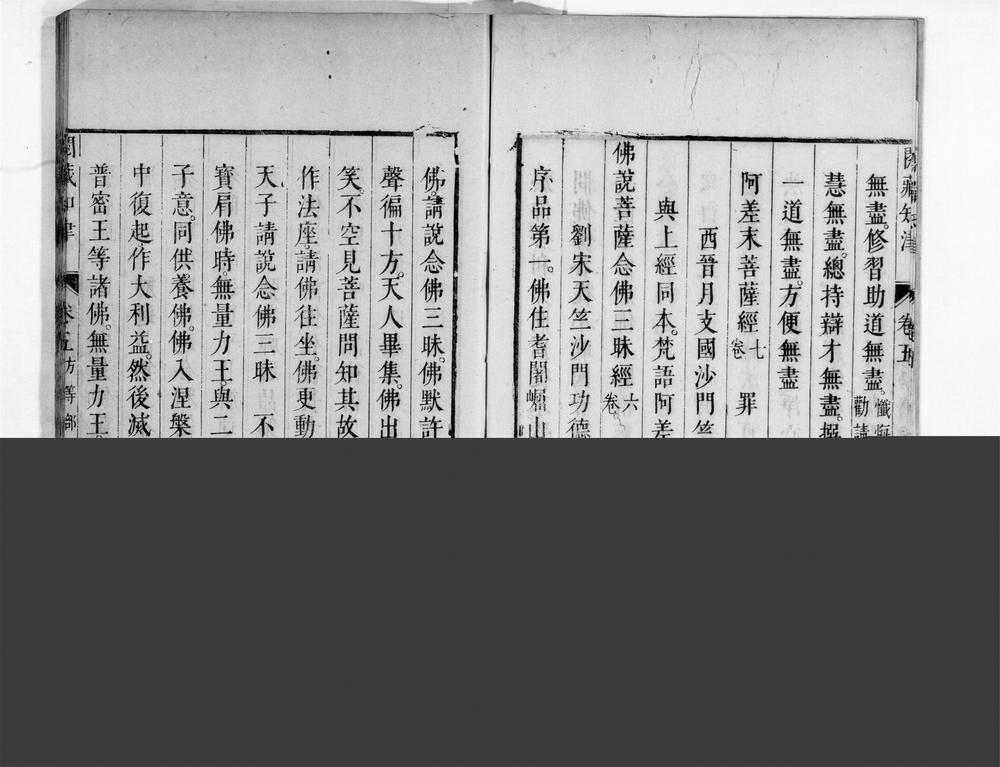 閱藏知津 卷五
無盡。修習助道無盡。懺悔勸請
慧無盡。總持辯才無盡。撰
一道無盡。方便無盡
阿差末菩薩經七卷 罪
西晉月支國沙門竺
與上經同本。梵語阿差
佛說菩薩念佛三昧經六卷
劉宋天竺沙門功德
序品第一。佛住耆闍崛山
佛。請說念佛三昧。佛默許
聲徧十方。天人畢集。佛出
笑。不空見菩薩問知其故
作法座。請佛往坐。佛更動
天子請說念佛三昧 不
寶肩佛時。無量力王。與二
子意。同供養佛。佛入涅槃
中復起作大利益。然後滅
普密王等諸佛。無量力王
閱藏知津 卷五 方等部